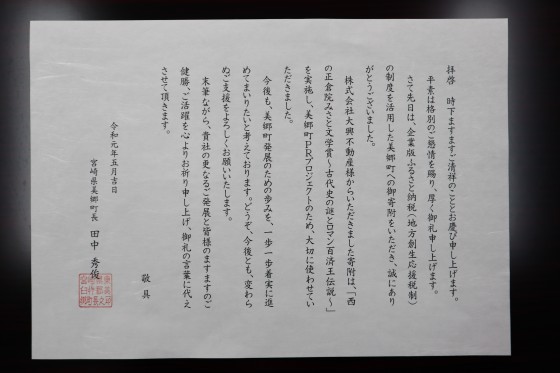 拝啓　時下ますますご清祥のこととお慶び申し上げます。
平素は格別のご懇情を賜り、厚く御礼申し上げます。
さて先日は、企業版ふるさと納税（地方創生応援税制）
の制度を活用した美郷町への御寄附をいただき、誠にあり
がとうございました。
株式会社大興不動産様からいただきました寄附は、「西
の正倉院みさと文学賞～古代史の謎とロマン百済王伝説～」
を実施し、美郷町PRプロジェクトのため、大切に使わせてい
ただきました。
今後も、美郷町発展のための歩みを、一歩一歩着実に進
めてまいりたいと考えております。どうぞ、今後とも、変わら
ぬご支援をよろしくお願いいたします。
末筆ながら、貴社の更なるご発展と皆様のますますのご
健勝、ご活躍を心よりお祈り申し上げ、御礼の言葉に代え
させて頂きます。
敬具
令和元年五月吉日
宮崎県美郷町長　田中　秀俊